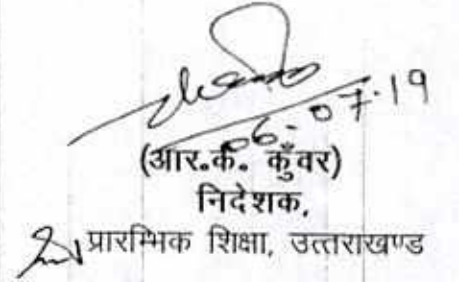 06-07.19
(आर॰के॰ कुँवर)
निदेशक,
प्रारम्भिक शिक्षा, उत्तराखण्ड